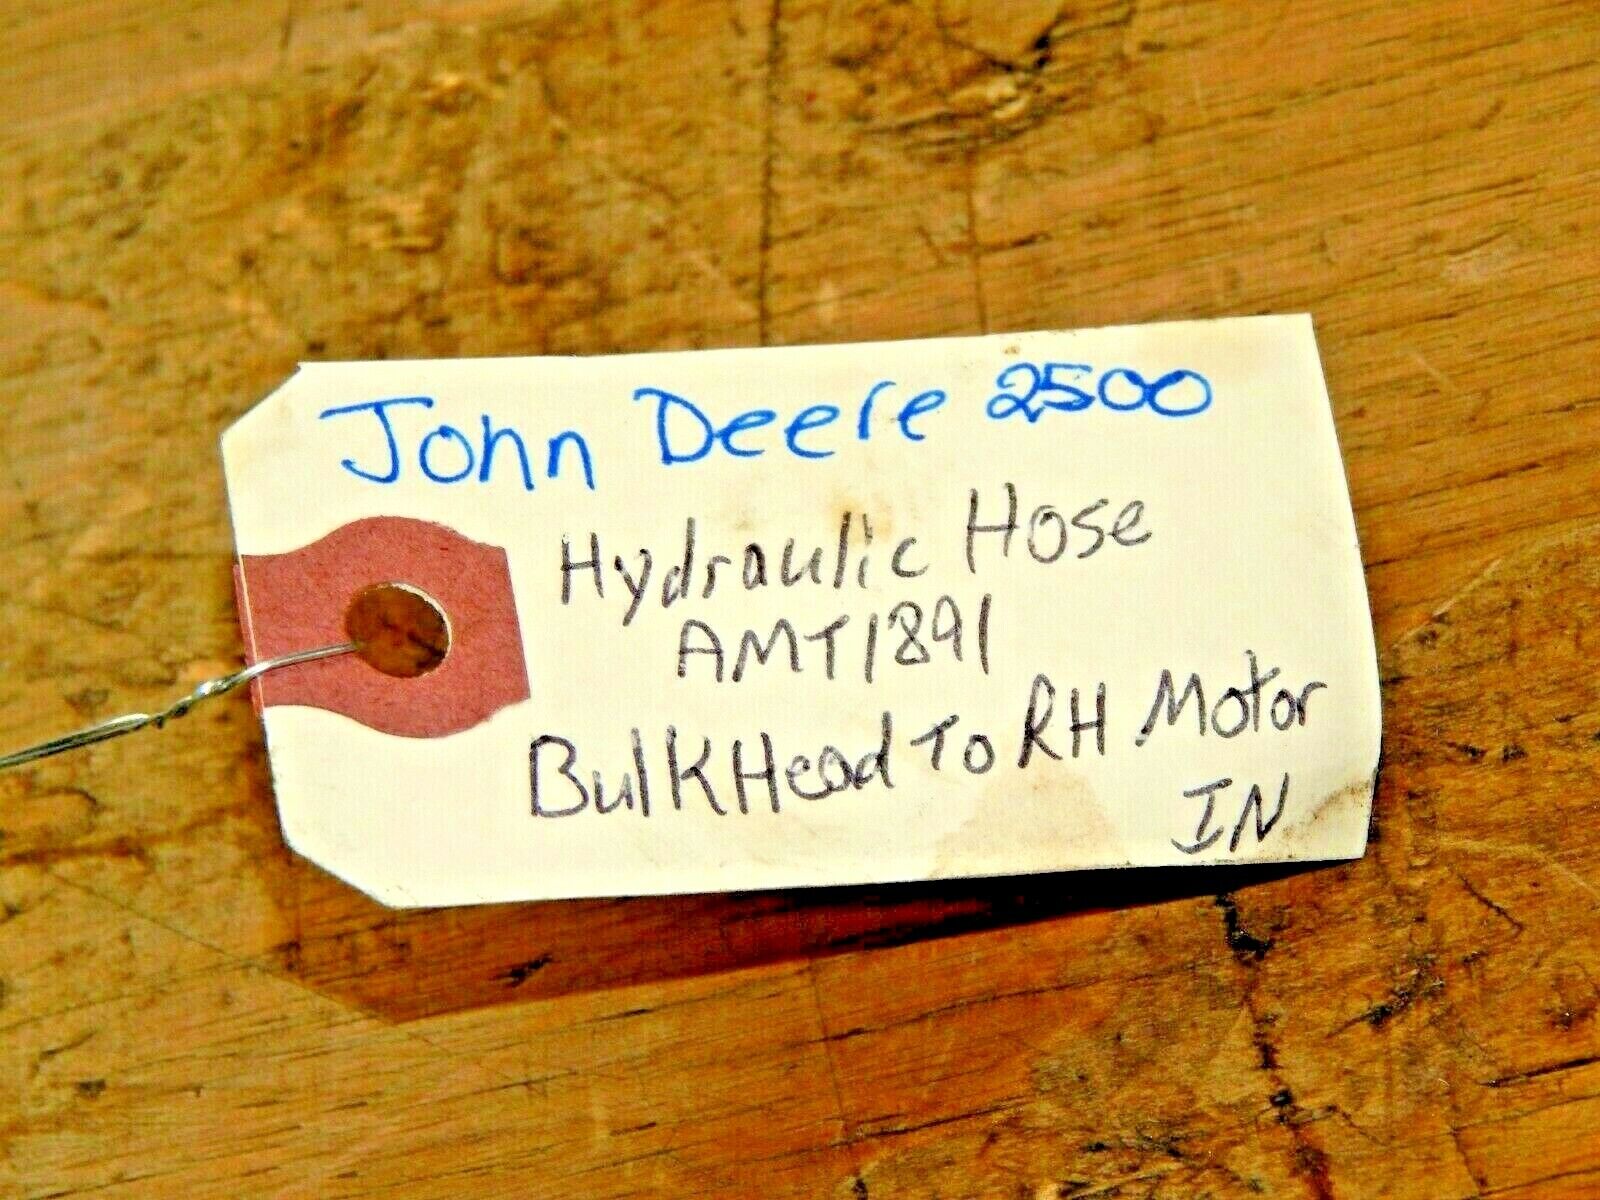 John Deere 2500
Hydraulic Hose
AMT1891
BulkHead To RH Motor
IN